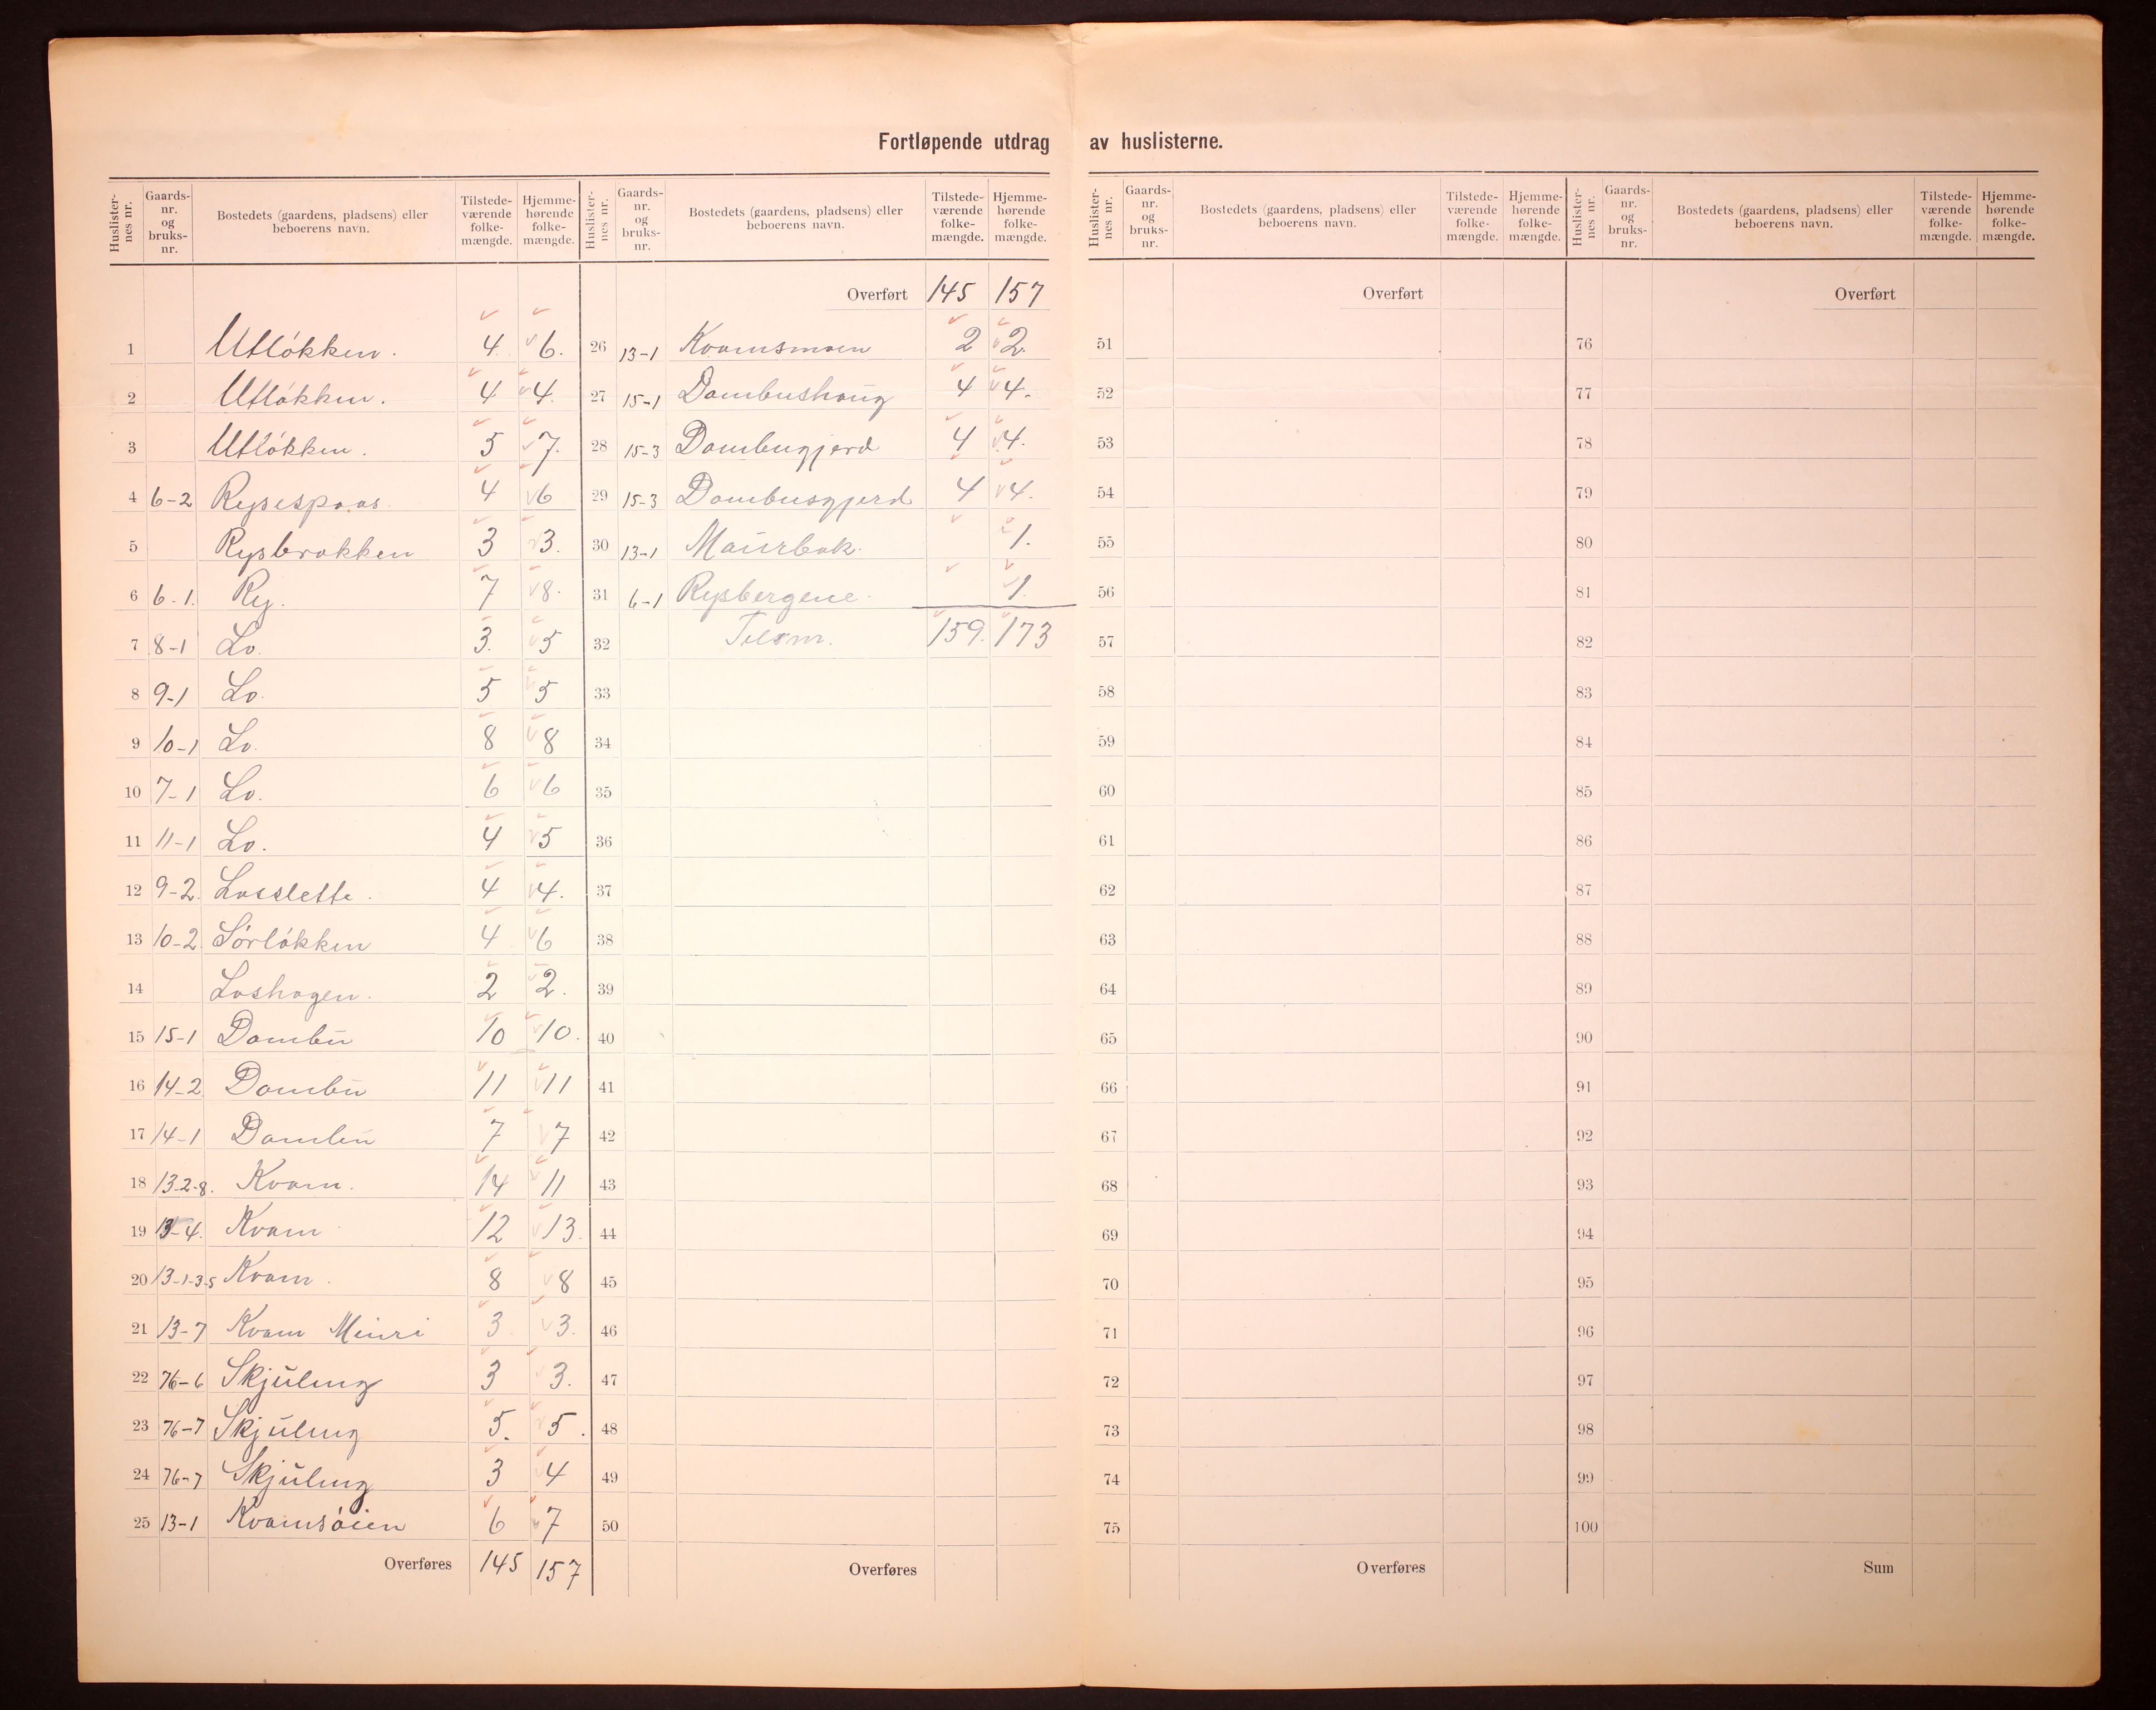 Fortløpende utdrag av huslisterne.
Huslisternes nr. Gaards-nr. og bruks-nr. Bostedets (gaardens, pladsens) eller beboerens navn. Tilstedeværende folkemængde. Hjemmehørende folkemængde. Huslisternes nr. Gaards-nr. og bruks-nr. Bostedets (gaardens, pladsens) eller beboerens navn. Tilstedeværende folkemængde. Hjemmehørende folkemængde.
1 Utløkken. 4 6.
2 Utløkken. 4 4.
3 Utløkken. 5 7.
4 6-2 4 6
5 Rysbrækken 3 3.
6 6-1. Ry. 7 8.
7 8-1 Lo. 3. 5
8 9-1 Lo. 5 5
9 10-1 Lo. 8 8
10 7-1 Lo. 6 6
11 11-1 Lo. 4 5
12 9-2. Losslette. 4 4.
13 10-2. Sørløkken 4 6
14 Loshagen. 2 2.
15 15-1 Dombu 10 10.
16 14-2 Dombu 11 11
17 14-1 Dombu 7 7
18 13-2-8. Kvam. 14 11
19 13-4. Kvam 12 13.
20 13-1-3-5 Kvam. 8 8
21 13-7 Kvam 3 3.
22 76-6 Skjuling 3 3.
23 76-7 Skjuling 5. 5.
24 76-7 Skjuling 3 4
25 13-1 Kvamsøien 6 7
Overføres 145 157
Overført 145 157
26 13-1 Kvamsmoen 2 2.
27 15-1 Dombushaug 4 4.
28 15-3 Dombugjerd 4 4.
29 15-3 Dombusgjerd 4 4.
30 13-1 Maurbak. 1.
31 6-1 Rysbergene. 1.
32 Tilsm. 159. 173
33
34
35
36
37
38
39
40
41
42
43
44
45
46
47
48
49
50
Overføres
Huslisternes nr. Gaards-nr. og bruks-nr. Bostedets (gaardens, pladsens) eller beboerens navn. Tilstedeværende folkemængde. Hjemmehørende folkemængde. Huslisternes nr. Gaards-nr. og bruks-nr. Bostedets (gaardens, pladsens) eller beboerens navn. Tilstedeværende folkemængde. Hjemmehørende folkemængde.
Overført
51
52
53
54
55
56
57
58
59
60
61
62
63
64
65
66
67
68
69
70
71
72
73
74
75
Overføres
Overført
76
77
78
79
80
81
82
83
84
85
86
87
88
89
90
91
92
93
94
95
96
97
98
99
100
Sum